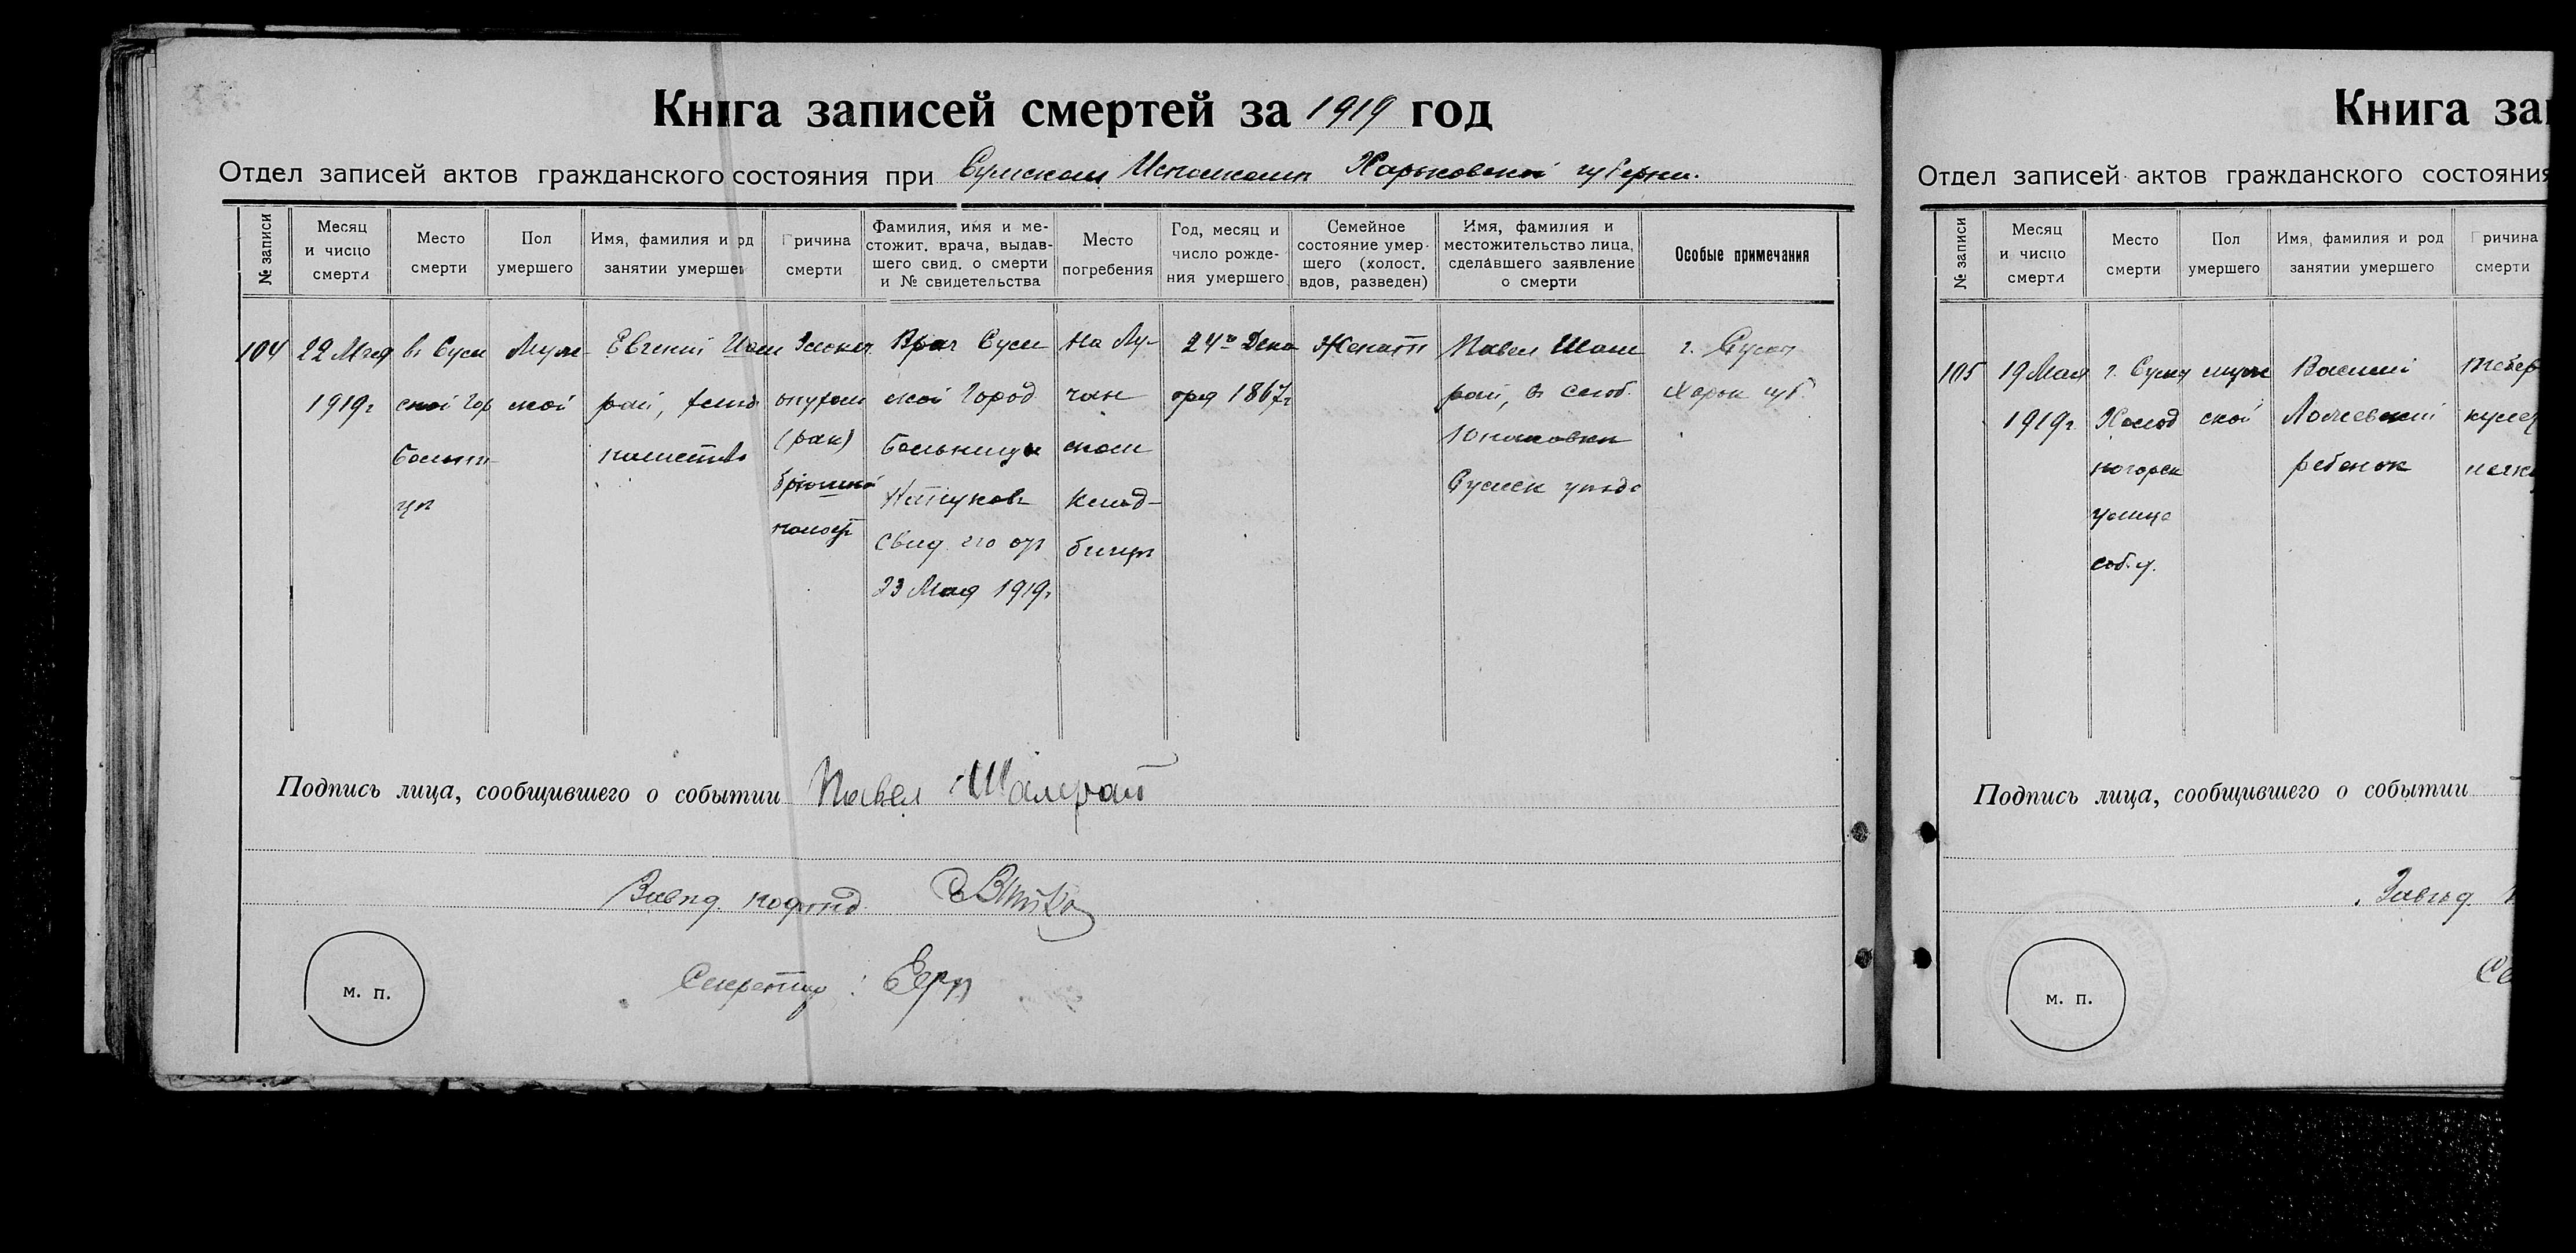 Книга записей смертей за 1919 год
Отдел записей актов гражданского состояния при Сумском Исполкоме Харьковской губернии.
№ записи
Месяц и число смерти
Место смерти
Пол умершего
Имя, фамилия и род занятии умершег
Причина смерти
Фамилия, имя и местожит. врача, выдавшего свид. о смерти и № свидетельства
Место погребения
Год, месяц и число рождения умершего
Семейное состояние умершего (холост. вдов, разведен)
Имя, фамилия и местожительство лица, сделавшего заявление о смерти
Особые примечания
104
22 Мая
1919 г
въ Сум
ской Гор
больни
цѣ
Муж-
ской
Евгений Шам
рай,
Злокач.
опухоль
(рак)
брюшной
полост
Врач Сум
ской Город
больницы
свид. его от
23 Мая 1919 г.
На Лу-
чан
ском
клад-
бищѣ
24го Дека
бря 1867 г
Женатъ
Павел Шам
рай, въ слоб.
Юнаковки
Сумск уѣзда
г. Сумы
Харьк губ.
Подпись лица, сообщившего о событии Павел Шамрай
Завѣд. подотд.
Секретарь:
м. п.
Книга за
Отдел записей актов гражданского состояния
№ записи
Месяц и число смерти
Место смерти
Пол умершего
Имя, фамилия и род занятии умершего
Причина смерти
105
19 Мая
1919 г.
г. Сумы
Холод
ногорск
улица
соб. д.
муж
ской
Василий
ребенок
тубер
кулез
легк
Подпись лица, сообщившего о событии
Завѣд.
м. п.